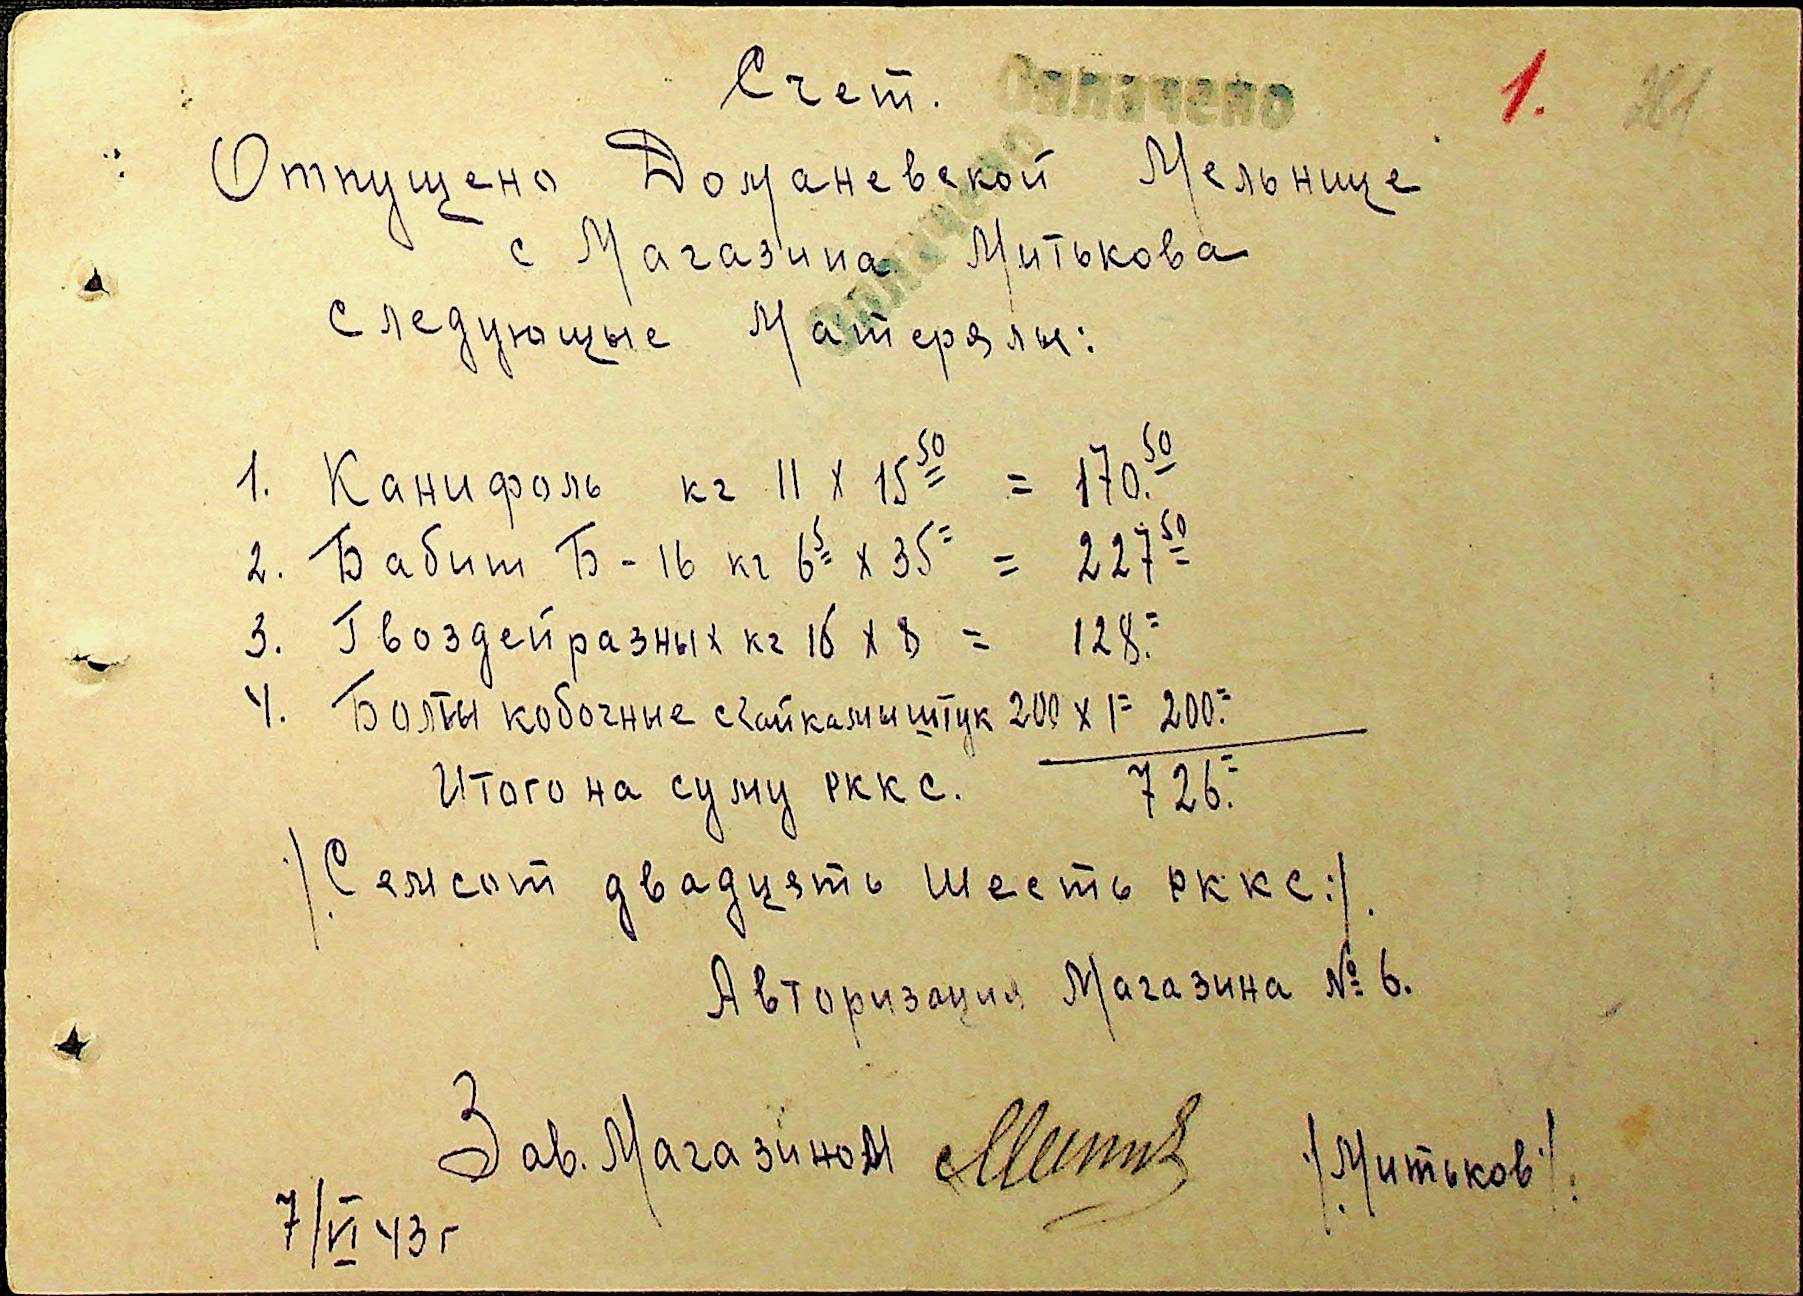 Счет. Оплачено 1. 281
Отпущено Доманевской Мельнице
Оплачено
с Магазина Митькова
следующие Матерялы:
1. Канифоль кг 11 х 15 50 = 170.50
2. Бабит Б - 16 кг 6 5 х 35 = = 227 50
3. Гвоздей разных кг 16 х 8 = 128.=
4. Болты кобочные с гайками штук 200 х 1= 200.=
Итого на суму РККС. 726.=
/:Семсот двадцять шесть РККС:/.
Авторизация Магазина № 6.
Зав. Магазином /:Митьков:/.
7/VI 43 г